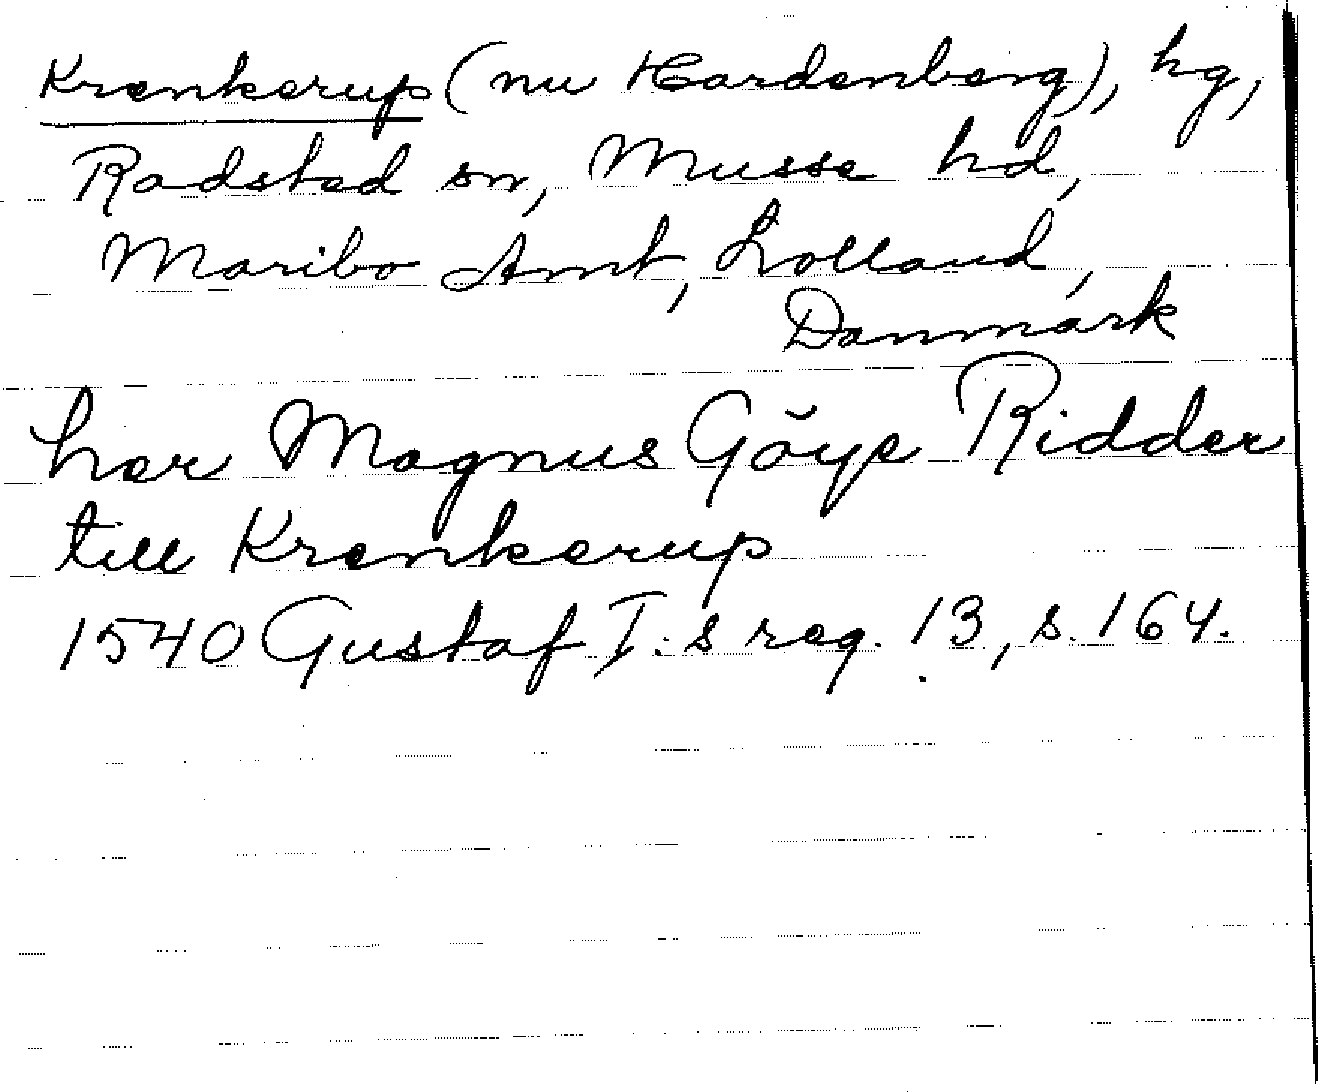 Krenkerup (nu Hardenberg), hg,
Radsted sn, Musse hd,
Maribo Amt, Lolland,
Danmark
her Magnus Göye Ridder
till Krenkerup
1540 Gustaf I:s reg. 13, s. 164.